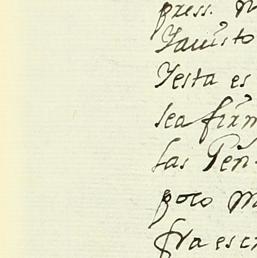 press.
Fausto
Testa es
sea firm
las Peñ
poco m
fra escr